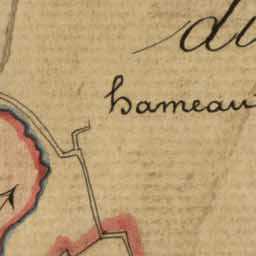 du
hameau